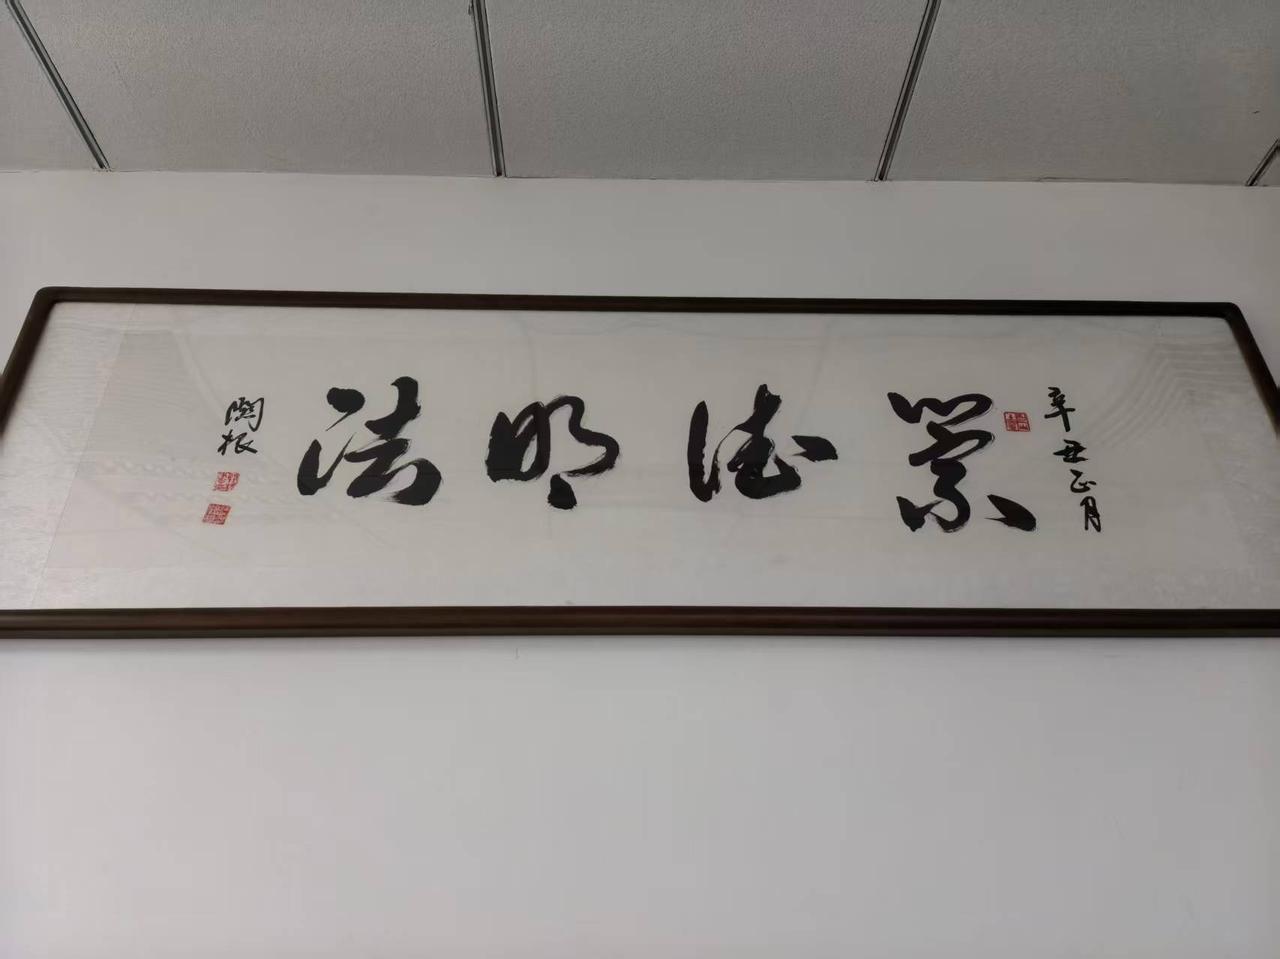 辛丑正月
崇德明法